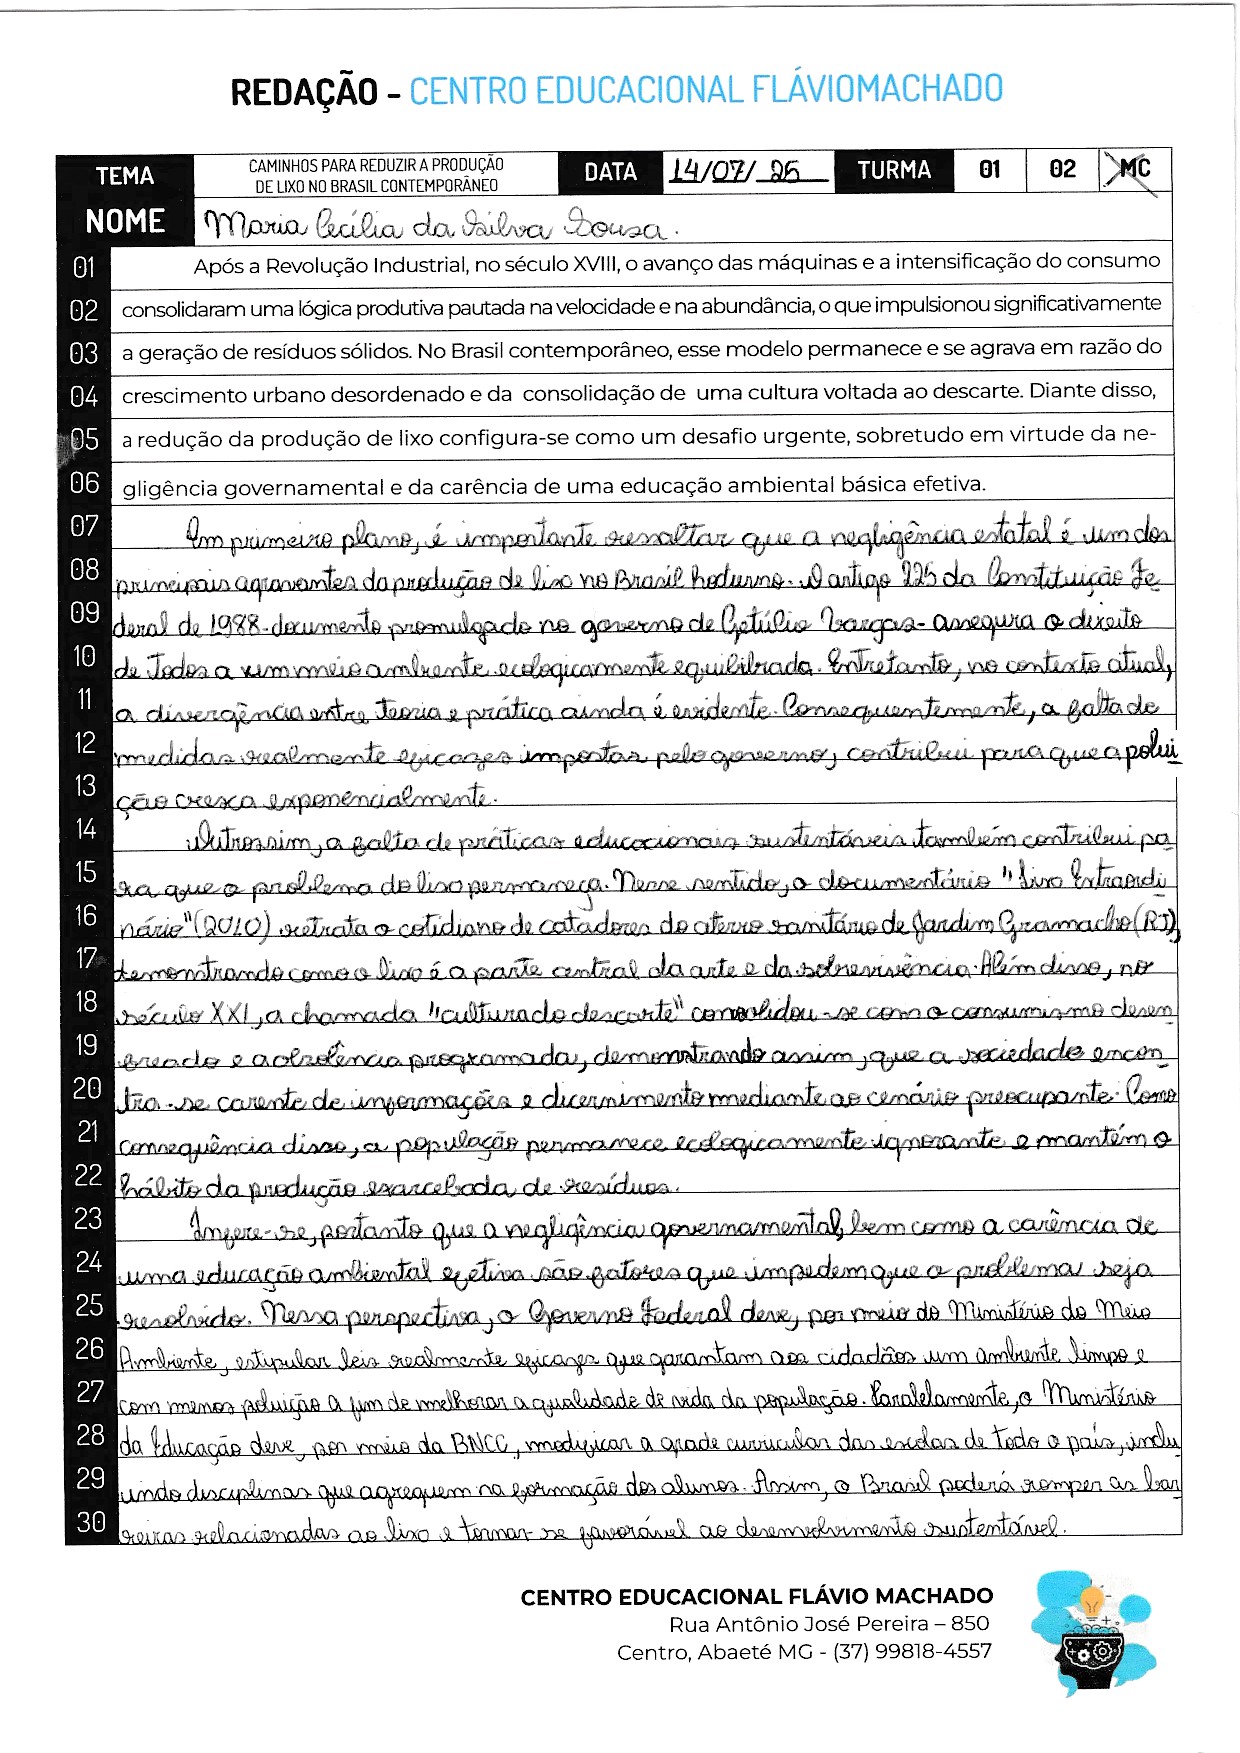 REDAÇÃO - CENTRO EDUCACIONAL FLÁVIOMACHADO
TEMA CAMINHOS PARA REDUZIR A PRODUÇÃO DE LIXO NO BRASIL CONTEMPORÂNEO DATA 14/07/26 TURMA 01 02 MC
NOME Maria Cecília da Silva Sousa.
01 Após a Revolução Industrial, no século XVIII, o avanço das máquinas e a intensificação do consumo
02 consolidaram uma lógica produtiva pautada na velocidade e na abundância, o que impulsionou significativamente
03 a geração de resíduos sólidos. No Brasil contemporâneo, esse modelo permanece e se agrava em razão do
04 crescimento urbano desordenado e da consolidação de uma cultura voltada ao descarte. Diante disso,
05 a redução da produção de lixo configura-se como um desafio urgente, sobretudo em virtude da ne-
06 gligência governamental e da carência de uma educação ambiental básica efetiva.
07 Em primeiro plano, é importante ressaltar que a negligência estatal é um dos
08 principais agravantes da produção de lixo no Brasil hodierno. O artigo 225 da Constituição Fe
09 deral de 1988-documento promulgado no governo de Getúlio Vargas- assegura o direito
10 de todos a um meio ambiente ecologicamente equilibrado. Entretanto, no contexto atual,
11 a divergência entre teoria e prática ainda é evidente. Consequentemente, a falta de
12 medidas realmente eficazes impostas pelo governo, contribui para que a polui
13 ção cresca exponencialmente.
14 Outrossim, a falta de práticas educacionais sustentáveis também contribui pa
15 ra que o problema do lixo permaneça. Nesse sentido, o documentário "Lixo Extraordi
16 nário" (2010) retrata o cotidiano de catadores do aterro sanitário de Jardim Gramacho (RJ),
17 demonstrando como o lixo é a parte central da arte e da sobrevivência. Além disso, no
18 século XXI, a chamada "cultura do descarte" consolidou-se com o consumismo desen
19 freado e a obsolência programada, demonstrando assim, que a sociedade encon
20 tra-se carente de informações e dicernimento mediante ao cenário preocupante. Como
21 consequência disso, a população permanece ecologicamente ignorante e mantém o
22 hábito da produção exarcebada de resíduos.
23 Infere-se, portanto que a negligência governamental, bem como a carência de
24 uma educação ambiental efetiva são fatores que impedem que o problema seja
25 resolvido. Nessa perspectiva, o Governo Federal deve, por meio do Ministério do Meio
26 Ambiente, estipular leis realmente eficazes que garantam aos cidadãos um ambiente limpo e
27 com menos poluição a fim de melhorar a qualidade de vida da população. Paralelamente, o Ministério
28 da Educação deve, por meio da BNCC, modificar a grade curricular das escolas de todo o país, inclu
29 indo disciplinas que agreguem na formação dos alunos. Assim, o Brasil poderá romper as bar
30 reiras relacionadas ao lixo e tornar-se favorável ao desenvolvimento sustentável.
CENTRO EDUCACIONAL FLÁVIO MACHADO
Rua Antônio José Pereira – 850
Centro, Abaeté MG - (37) 99818-4557